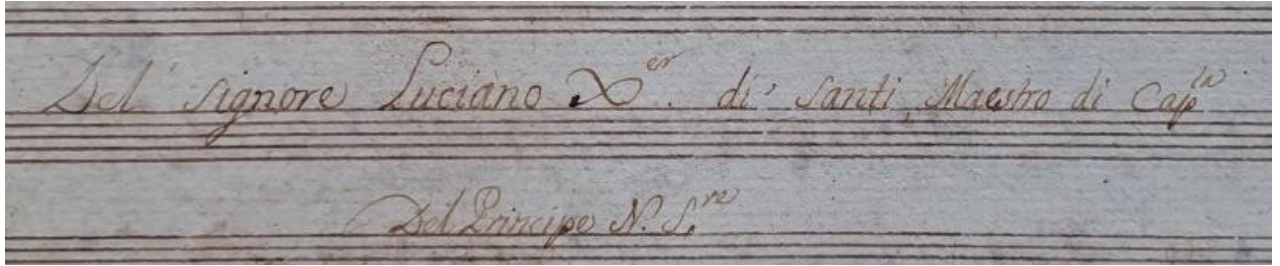 Del signore Luciano X.er di Santi, Maestro di Cap.la
Del Principe N. S.re